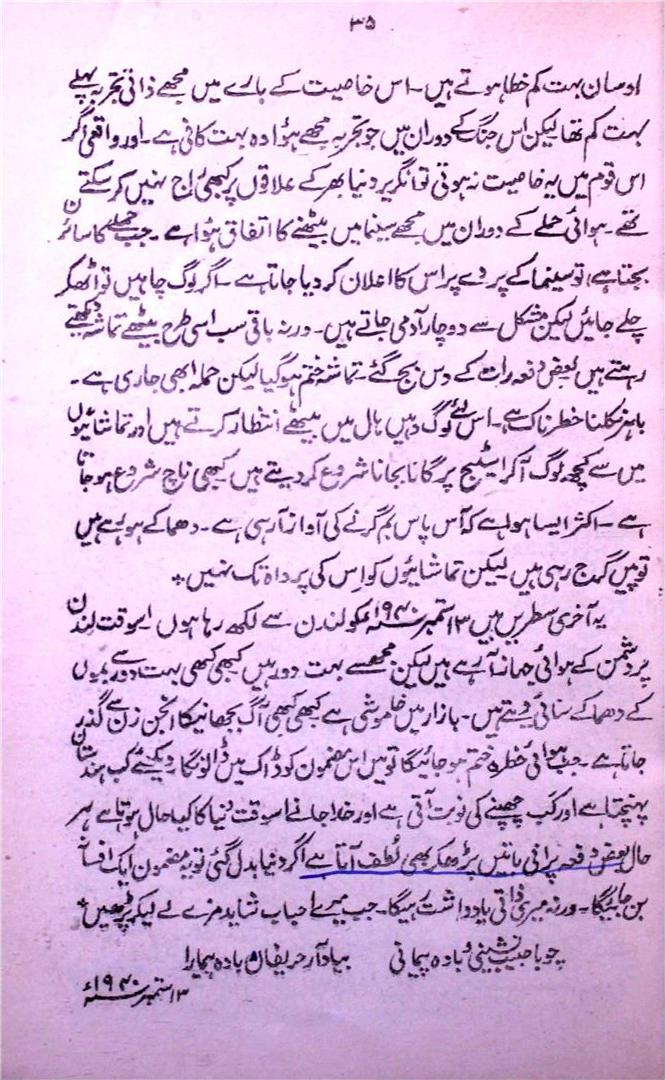 ۳۵
اوسان بہت کم خطا ہوتے ہیں۔ اس خاصیت کے بارے میں مجھے ذاتی تجربہ پہلے
بہت کم تھا لیکن اس جنگ کے دوران میں جو تجربہ مجھے ہوا وہ بہت کافی ہے۔ اور واقعی اگر
اس قوم میں یہ خاصیت نہ ہوتی تو انگریز دنیا بھر کے علاقوں پر کبھی راج نہیں کر سکتے
تھے۔ ہوائی حملے کے دوران میں مجھے سینما میں بیٹھنے کا اتفاق ہوا ہے۔ جب حملے کا سائرن
بجتا ہے، تو سینما کے پردے پر اس کا اعلان کر دیا جاتا ہے۔ اگر لوگ چاہیں تو اٹھکر
چلے جائیں لیکن مشکل سے دو چار آدمی جاتے ہیں۔ ورنہ باقی سب اسی طرح بیٹھے تماشہ دیکھتے
رہتے ہیں بعض دفعہ رات کے دس بج گئے۔ تماشہ ختم ہو گیا لیکن حملہ ابھی جاری ہے۔
باہر نکلنا خطرناک ہے۔ اس لئے لوگ وہیں ہال میں بیٹھے انتظار کرتے ہیں اور تماشائیوں
میں سے کچھ لوگ آکر اسٹیج پر گانا بجانا شروع کر دیتے ہیں کبھی ناچ شروع ہو جاتا
ہے۔ اکثر ایسا ہوا ہے کہ آس پاس بم گرنے کی آواز آ رہی ہے۔ دھماکے ہو رہے ہیں
توپیں گرج رہی ہیں لیکن تماشائیوں کو اس کی پرواہ تک نہیں٭
یہ آخری سطریں میں ۱۳ ستمبر ۱۹۴۰ء کو لندن سے لکھ رہا ہوں اسوقت لندن
پر دشمن کے ہوائی جہاز آ رہے ہیں لیکن مجھسے بہت دور ہیں کبھی کبھی بہت دور سے بموں
کے دھماکے سنائی دیتے ہیں۔ بازار میں خاموشی ہے کبھی کبھی آگ بجھانیکا انجن زن سے گذر
جاتا ہے۔ جب ہوائی خطرہ ختم ہو جائیگا تو میں اس مضمون کو ڈاک میں ڈالونگا۔ دیکھئے کب ہندستان
پہنچتا ہے اور کب چھپنے کی نوبت آتی ہے اور خدا جانے اسوقت دنیا کا کیا حال ہوتا ہے بہر
حال بعض دفعہ پرانی باتیں پڑھکر بھی لطف آتا ہے اگر دنیا بدل گئی تو یہ مضمون ایک افسانہ
بن جائیگا۔ ورنہ میری ذاتی یادداشت رہیگا۔ جب میرے احباب شاید مزے لے لیکر پڑھیں٭
چو با حبیب نشینی و بادہ پیمائی      بیاد آر حریفان بادہ پیمارا
۱۳ ستمبر ۱۹۴۰ء